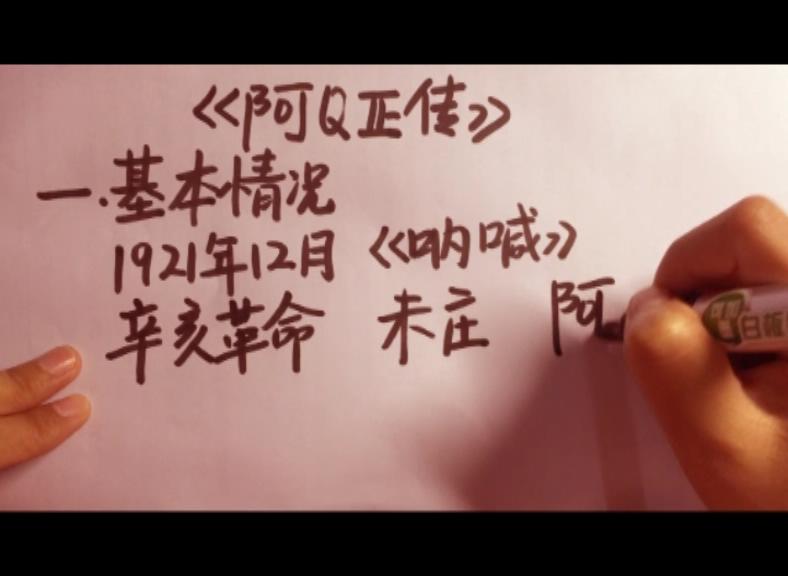 《阿Q正传》
一.基本情况
1921年12月 《呐喊》
辛亥革命 未庄 阿
白板